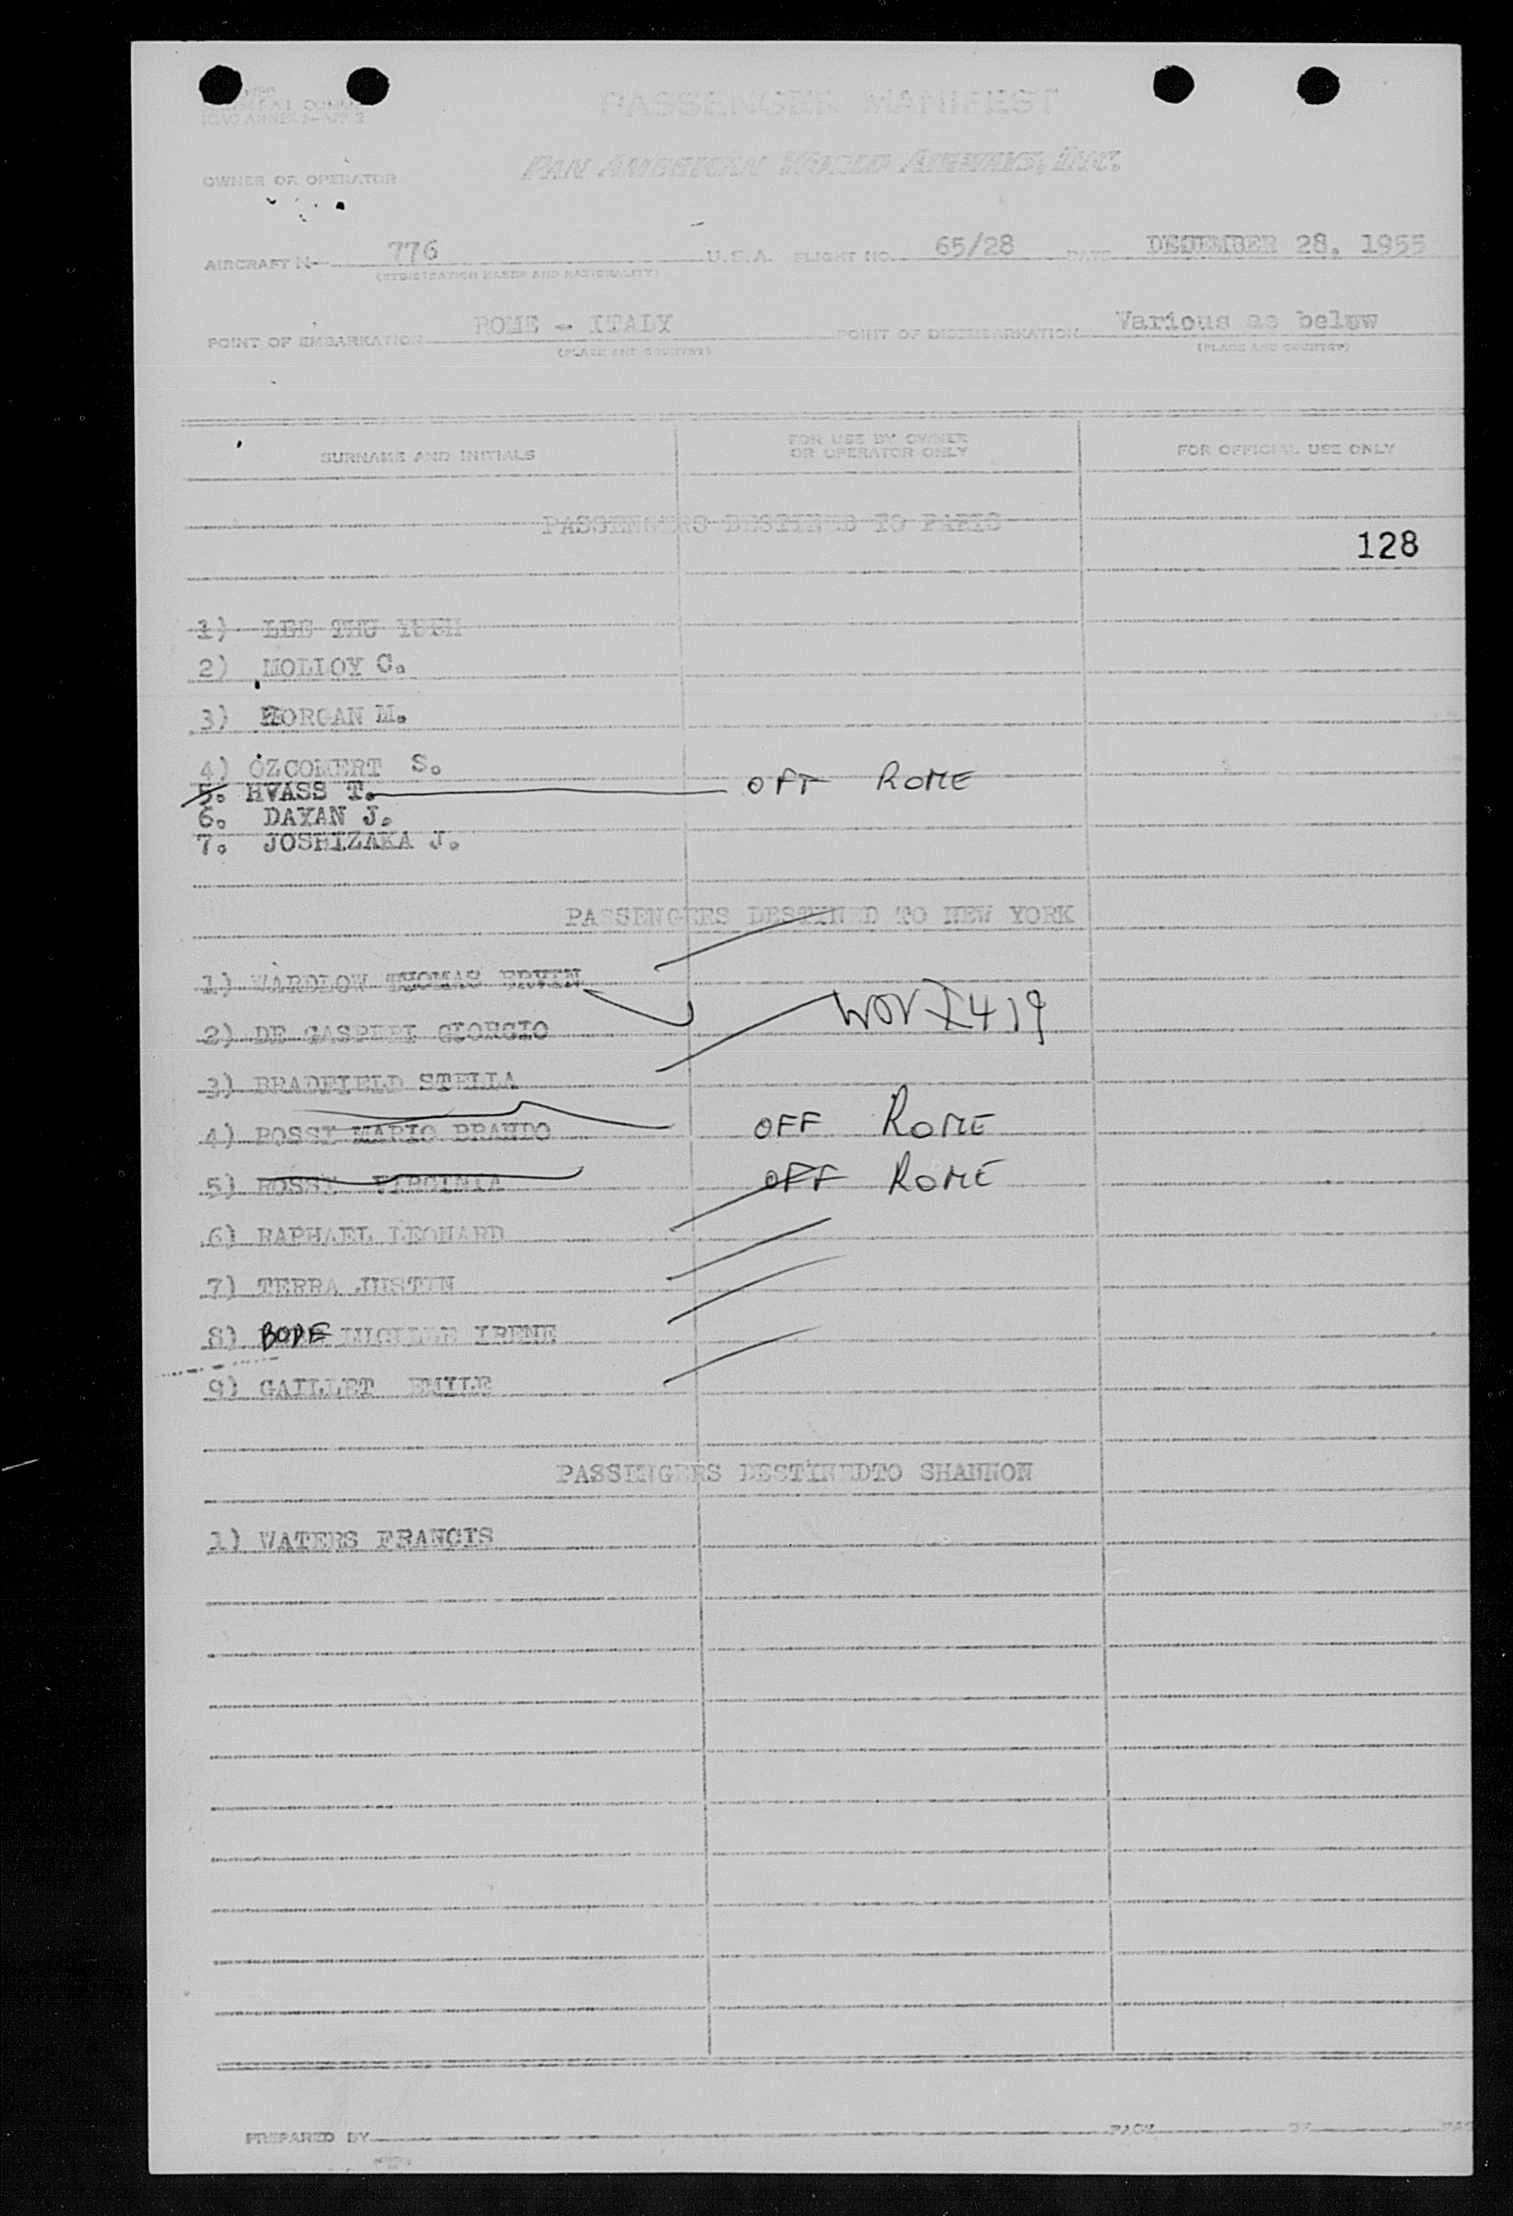 PASSENGER MANIFEST
PAN AMERICAN WORLD AIRWAYS, INC.
OWNER OR OPERATOR
AIRCRAFT N- 776 U.S.A. FLIGHT NO. 65/28 DATE DECEMBER 28, 1955
(REGISTRATION MARKS AND NATIONALITY)
POINT OF EMBARKATION ROME - ITALY POINT OF DISEMBARKATION Various as below
(PLACE AND COUNTRY) (PLACE AND COUNTRY)
SURNAME AND INITIALS FOR USE BY OWNER OR OPERATOR ONLY FOR OFFICIAL USE ONLY
PASSENGERS DESTINED TO PARIS
128
1) LEE THU
2) MOLLOY C.
3) MORGAN M.
4) OZCOMERT S.
5. HVASS T. OFF ROME
6. DAYAN J.
7. JOSHIZAKA J.
PASSENGERS DESTINED TO NEW YORK
1) WARDLOW THOMAS ERVIN
2) DE GASPERI GIORGIO
3) BRADFIELD STELLA
4) ROSSI MARIO BRANDO OFF ROME
5) ROSSI VIRGINIA OFF ROME
6) RAPHAEL LEONARD
7) TERRA JUSTIN
8) BODE LUCILLE IRENE
9) GAILLET EMILE
PASSINGERS DESTINEDTO SHANNON
1) WATERS FRANCIS
PREPARED BY PAGE OF